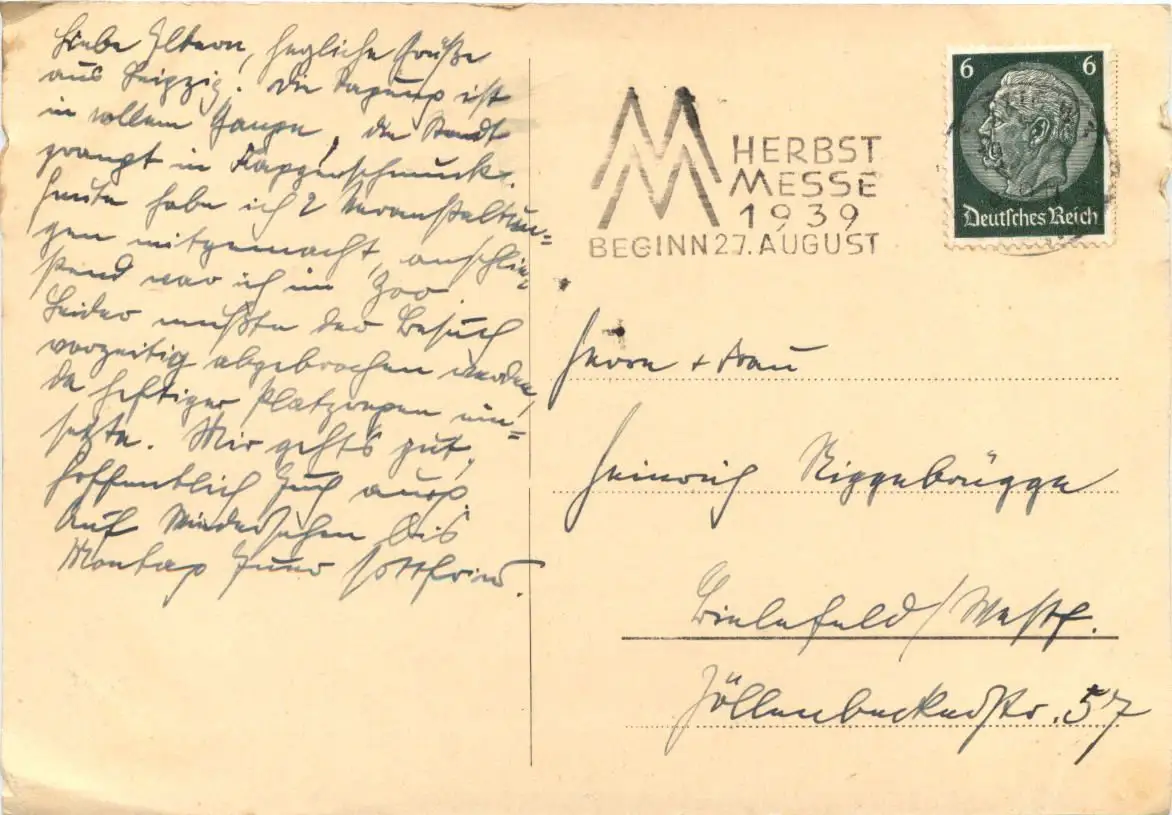 Liebe Eltern, herzliche Grüße
aus Leipzig! Die Tagung ist
in vollem Gange, die Stadt
prangt in Flaggenschmuck.
Heute habe ich 2 Veranstaltun=
gen mitgemacht, anschlie=
ßend war ich im Zoo
Leider mußte der Besuch
vorzeitig abgebrochen werden,
da heftiger Platzregen ein=
setzte. Mir geht's gut,
hoffentlich Euch auch.
Auf Wiedersehen bis
Montag Euer Gottfried.
MM HERBST
MESSE
1939
BEGINN 27. AUGUST
6 6
Deutsches Reich
Herrn + Frau
Heinrich Niggebrügge
Bielefeld/Westf.
Jöllenbeckerstr. 57